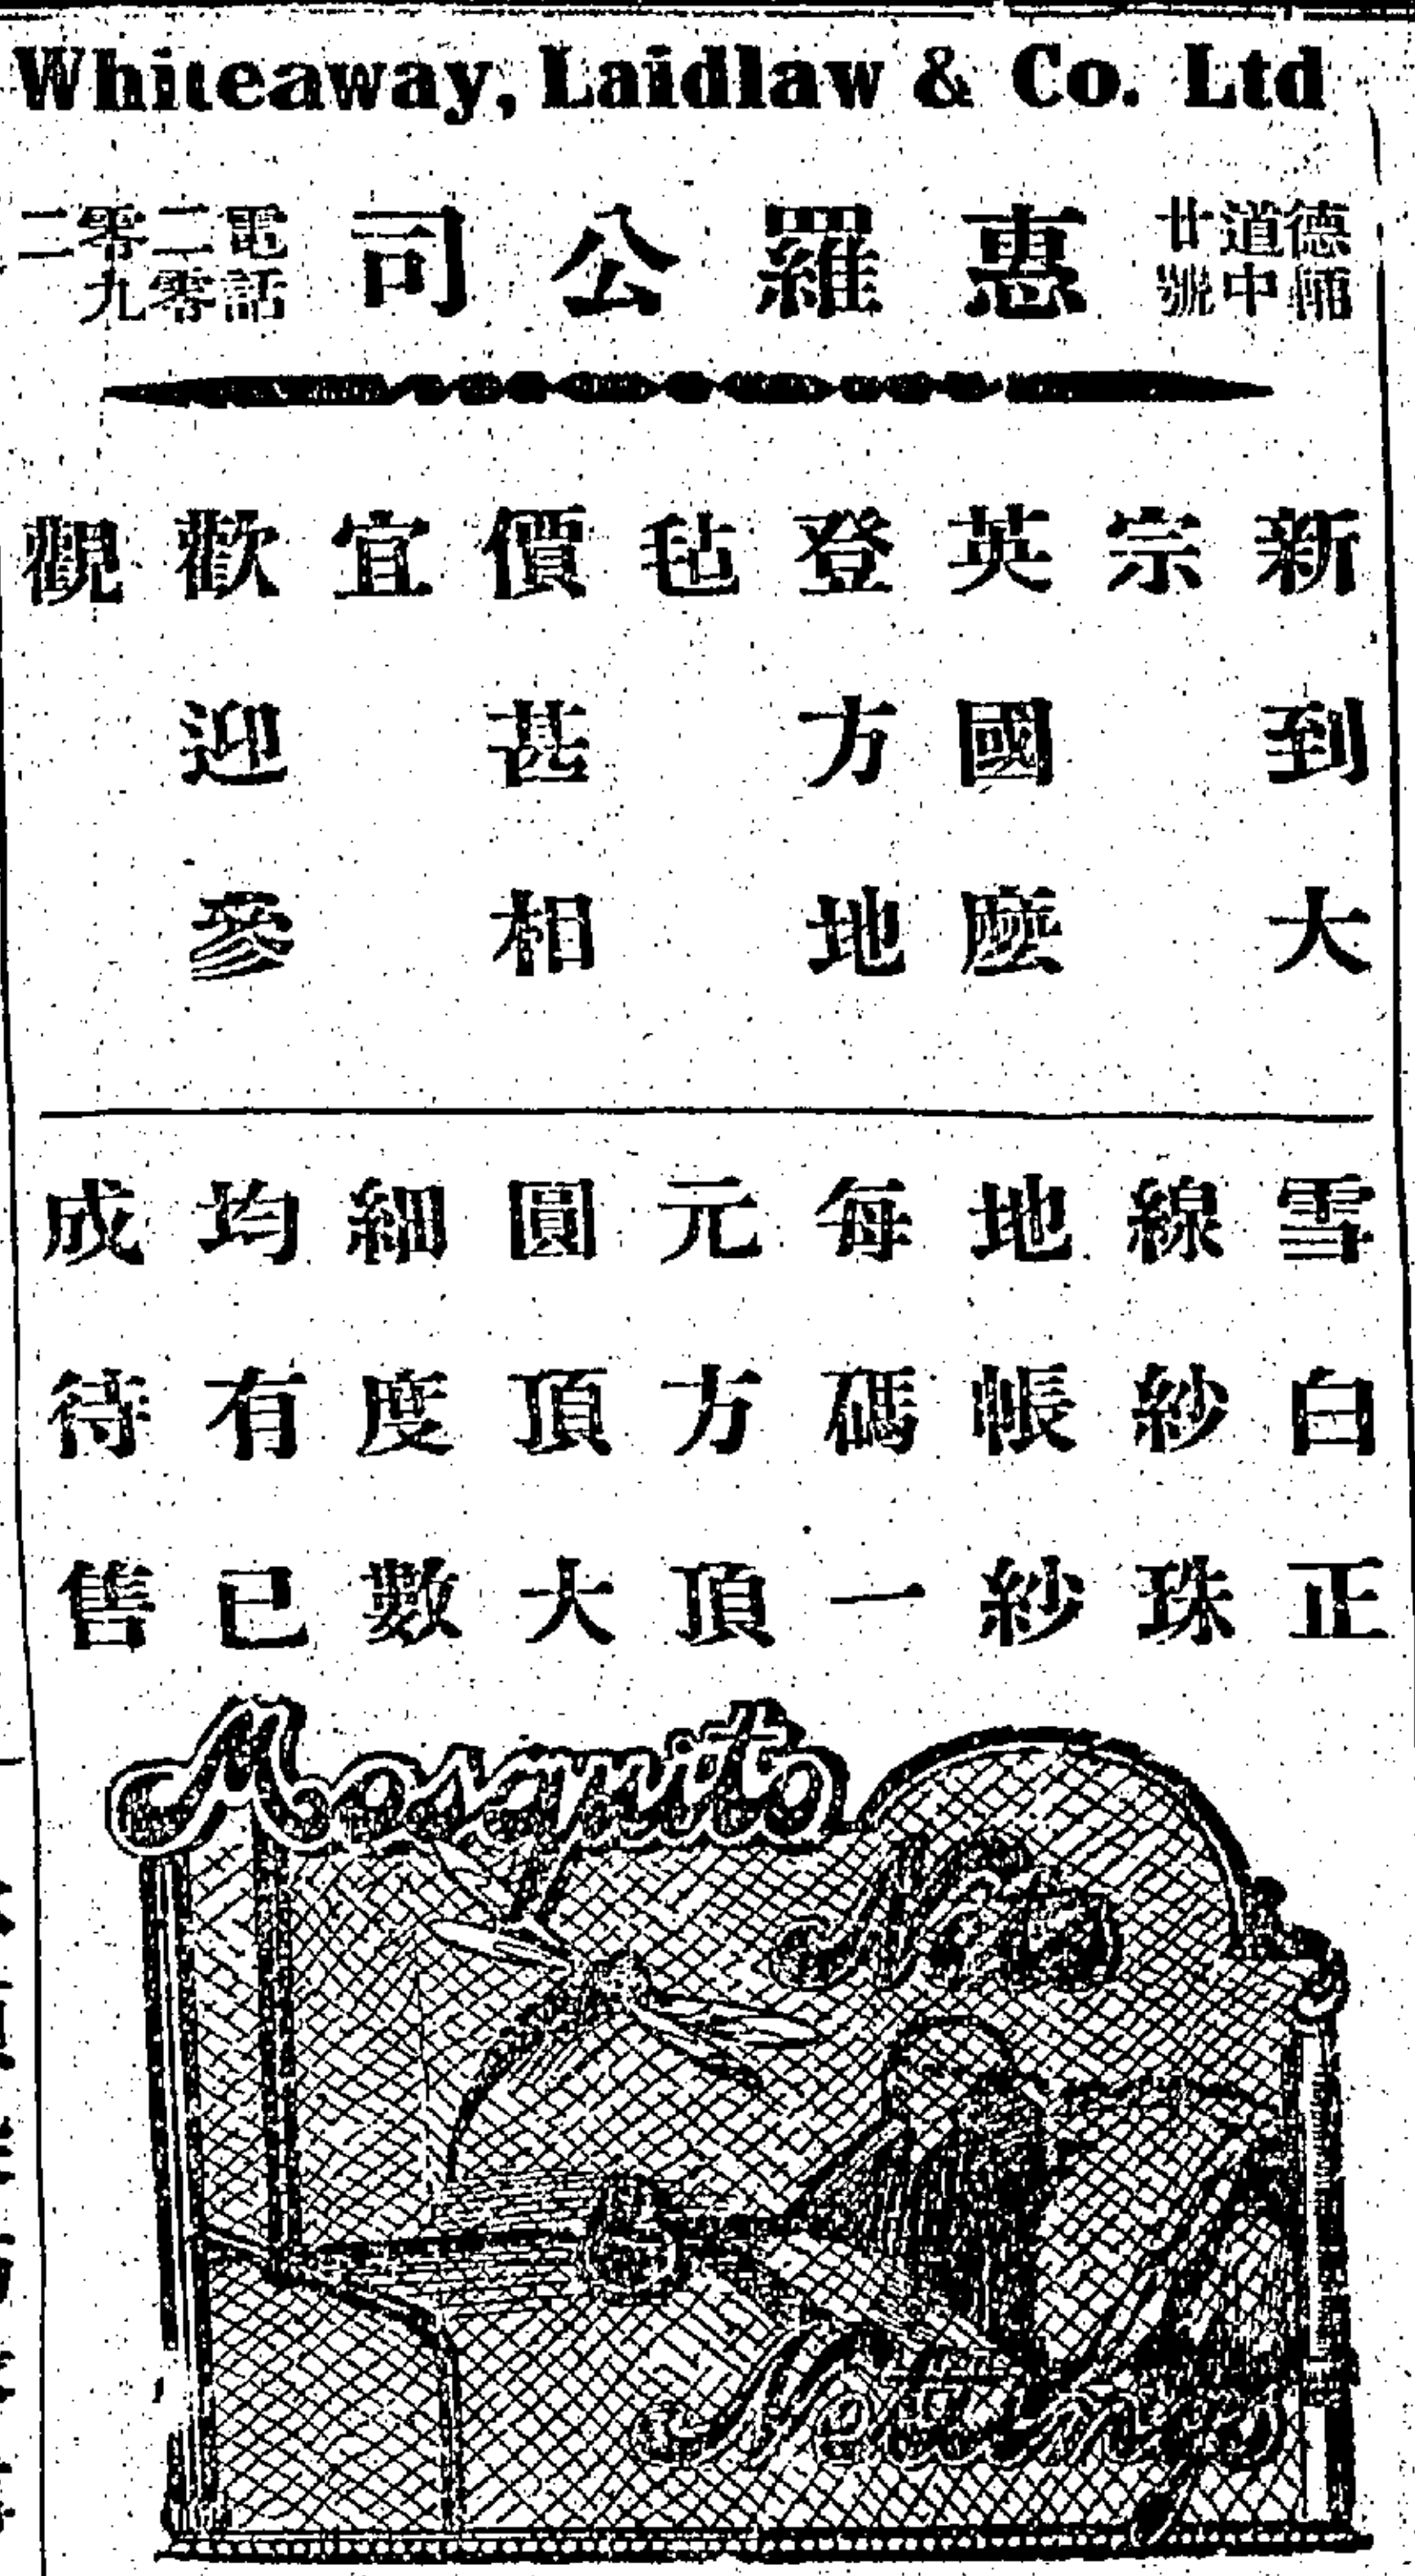 Whiteaway, Laidlaw & Co. Ltd
德輔
道中
廿號
惠羅公司
電話
二零
零九
二
新到大
宗
英國廠
登方地
毡
價甚相
宜
歡迎參
觀
雪白正
線紗珠
地帳紗
每碼一
元方頂
圓頂大
細度數
均有已
成待售
Mosquito
Nets
Netting